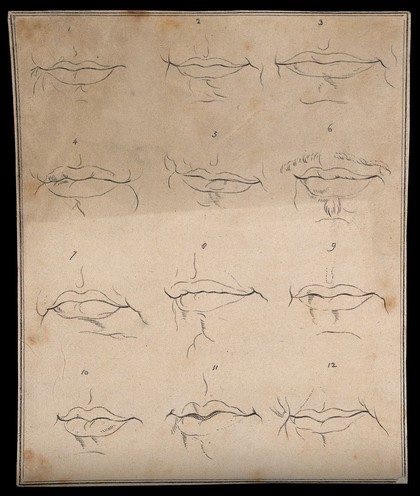 1 2 3
4 5 6
7 8 9
10 11 12